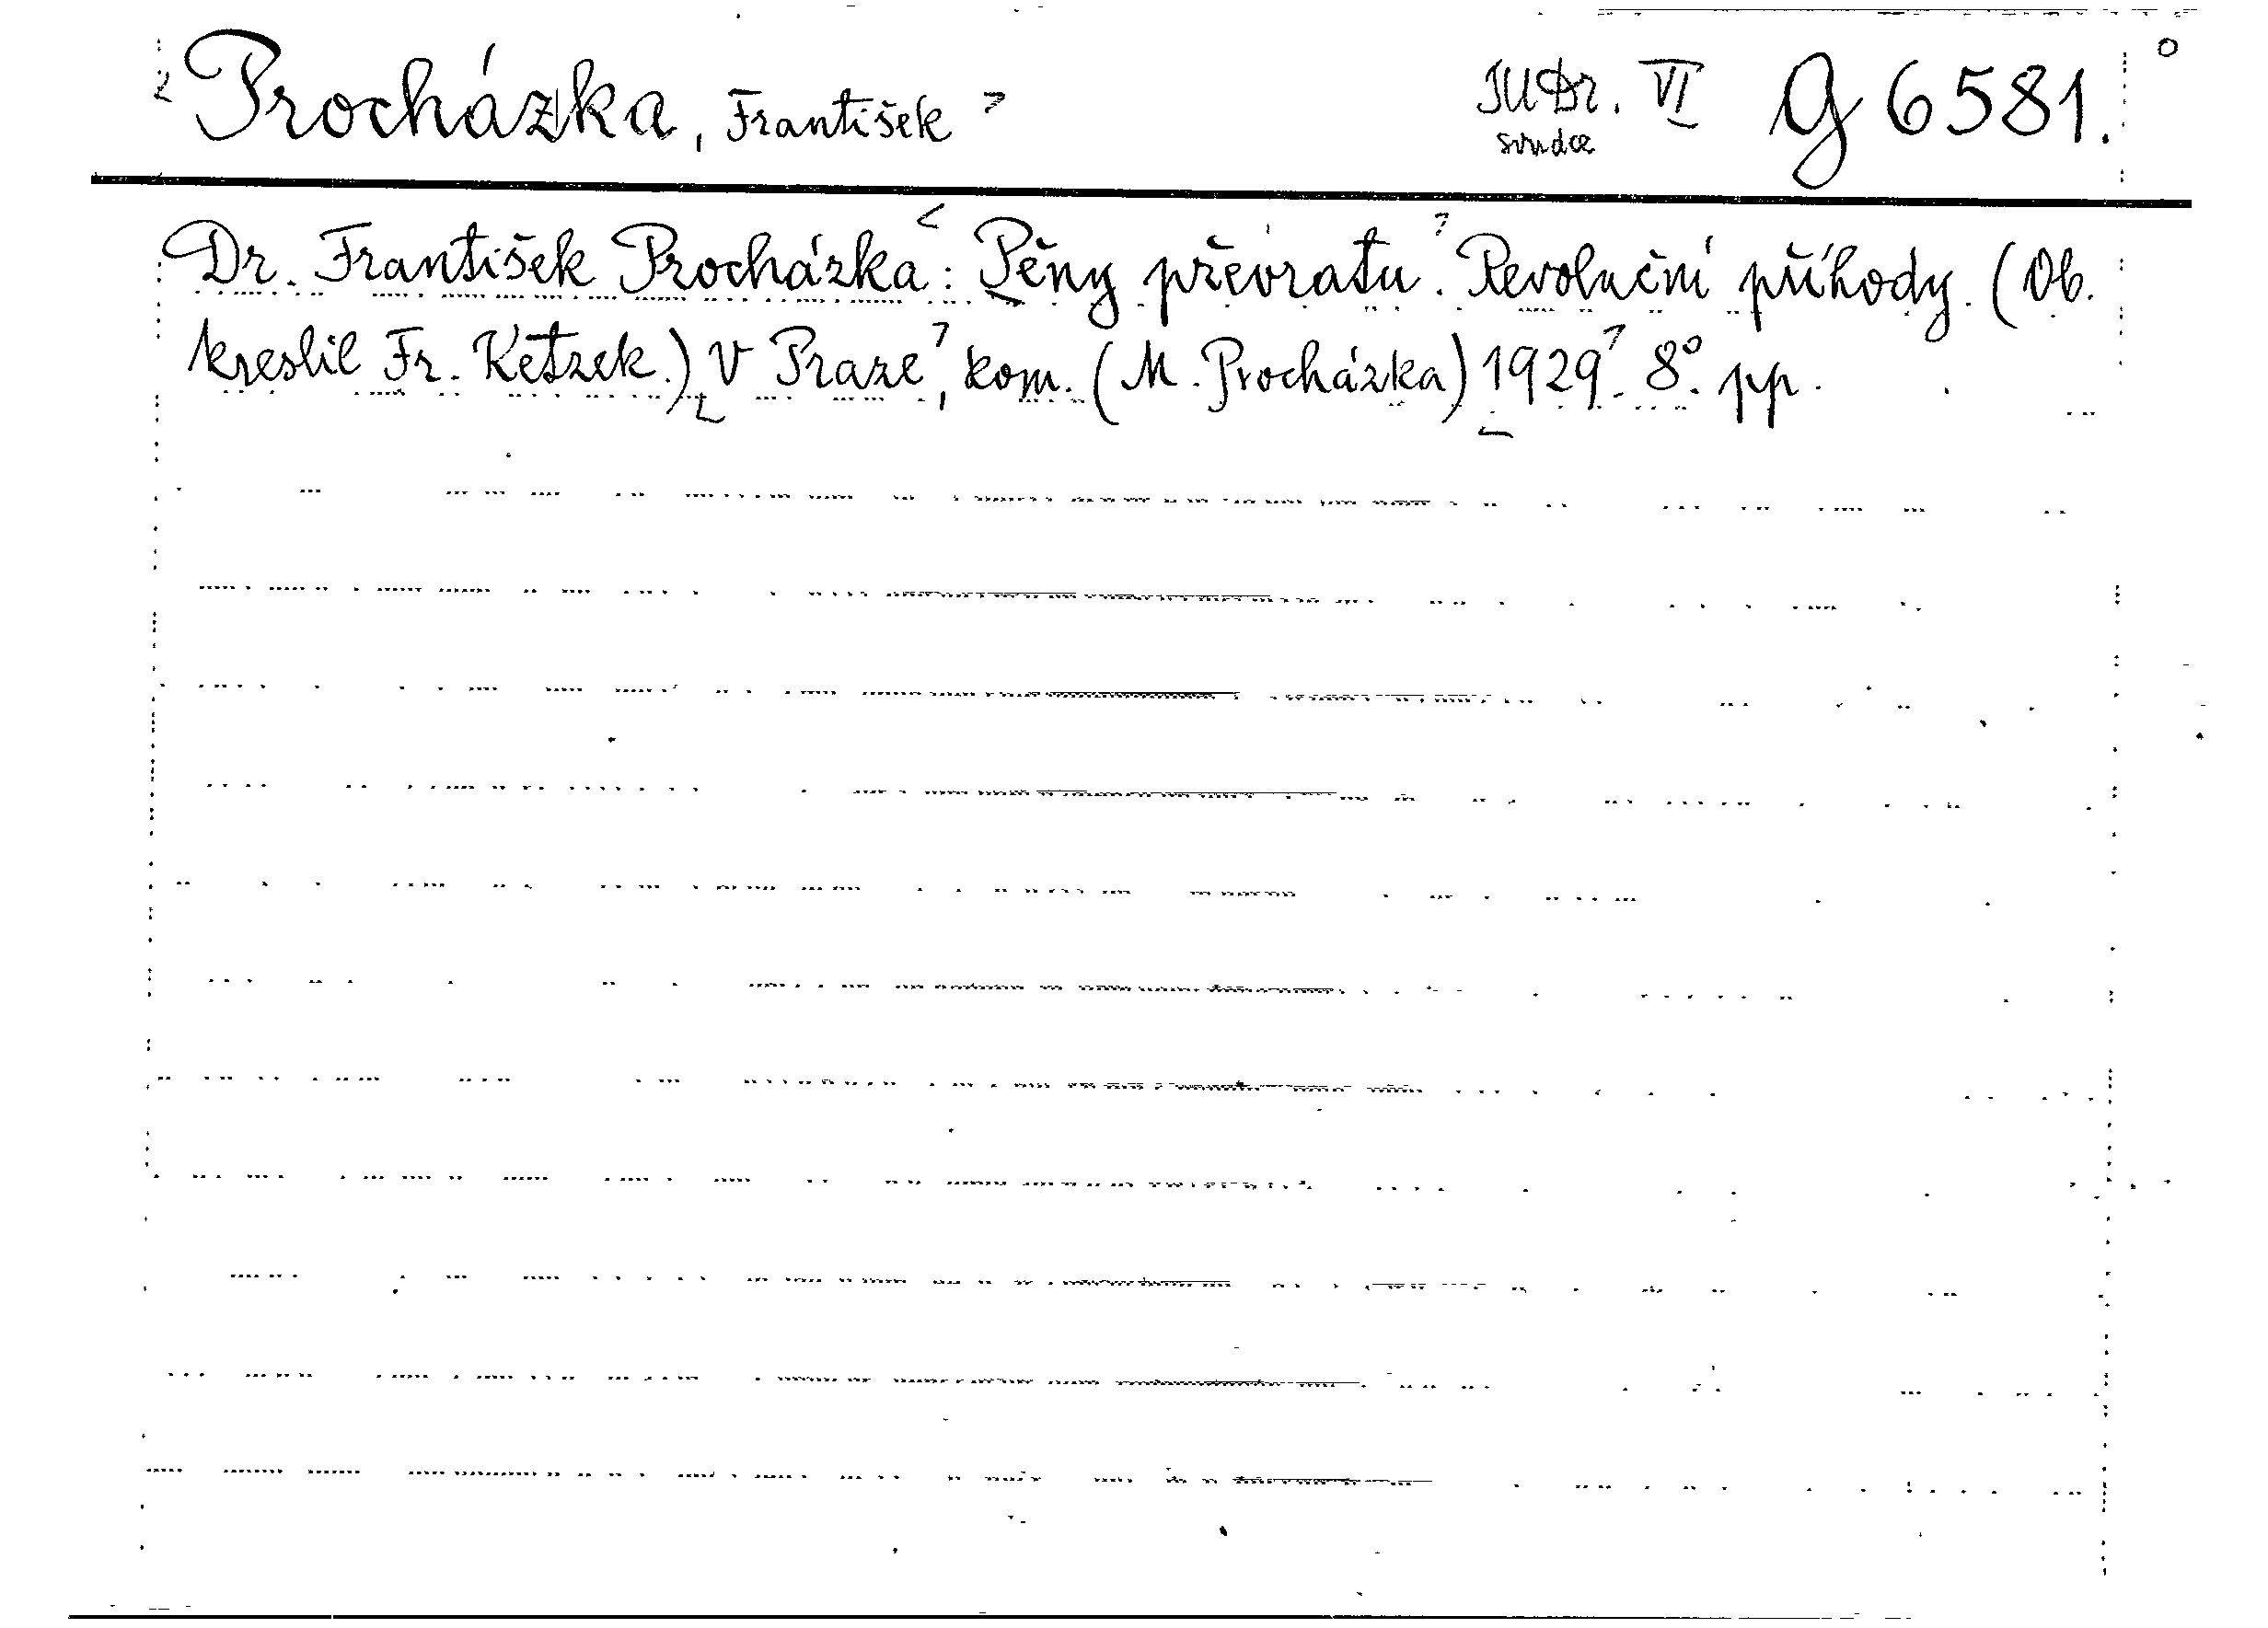 Procházka, František JUDr. VI G 6581.
soudce
Dr. František Procházka: Pěny převratu. Revoluční příhody. (Ob.
kreslil Fr. Ketzek.) V Praze, kom. (M. Procházka) 1929. 8°. pp.